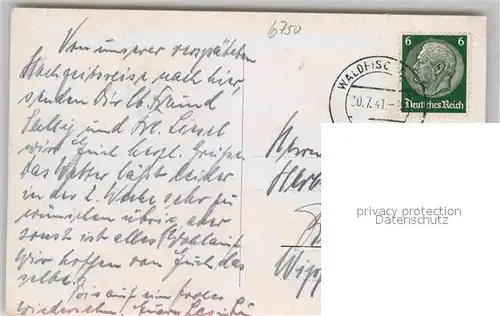 6750
Von unserer verspäteten
Hochzeitsreise nach hier,
senden Dir lb. Freund
und Frl. Liesel
wir Euch herzl. Grüße.
das Wetter läßt leider
in der 2. Woche sehr zu
wünschen übrig, aber
sonst ist alles Wohlauf
Wir hoffen von Euch das
selbe.
Bis auf ein frohes
Wiedersehn,
WALDFISC
30.7.41.-
6 6
Deutsches Reich
Herrn
privacy protection
Datenschutz